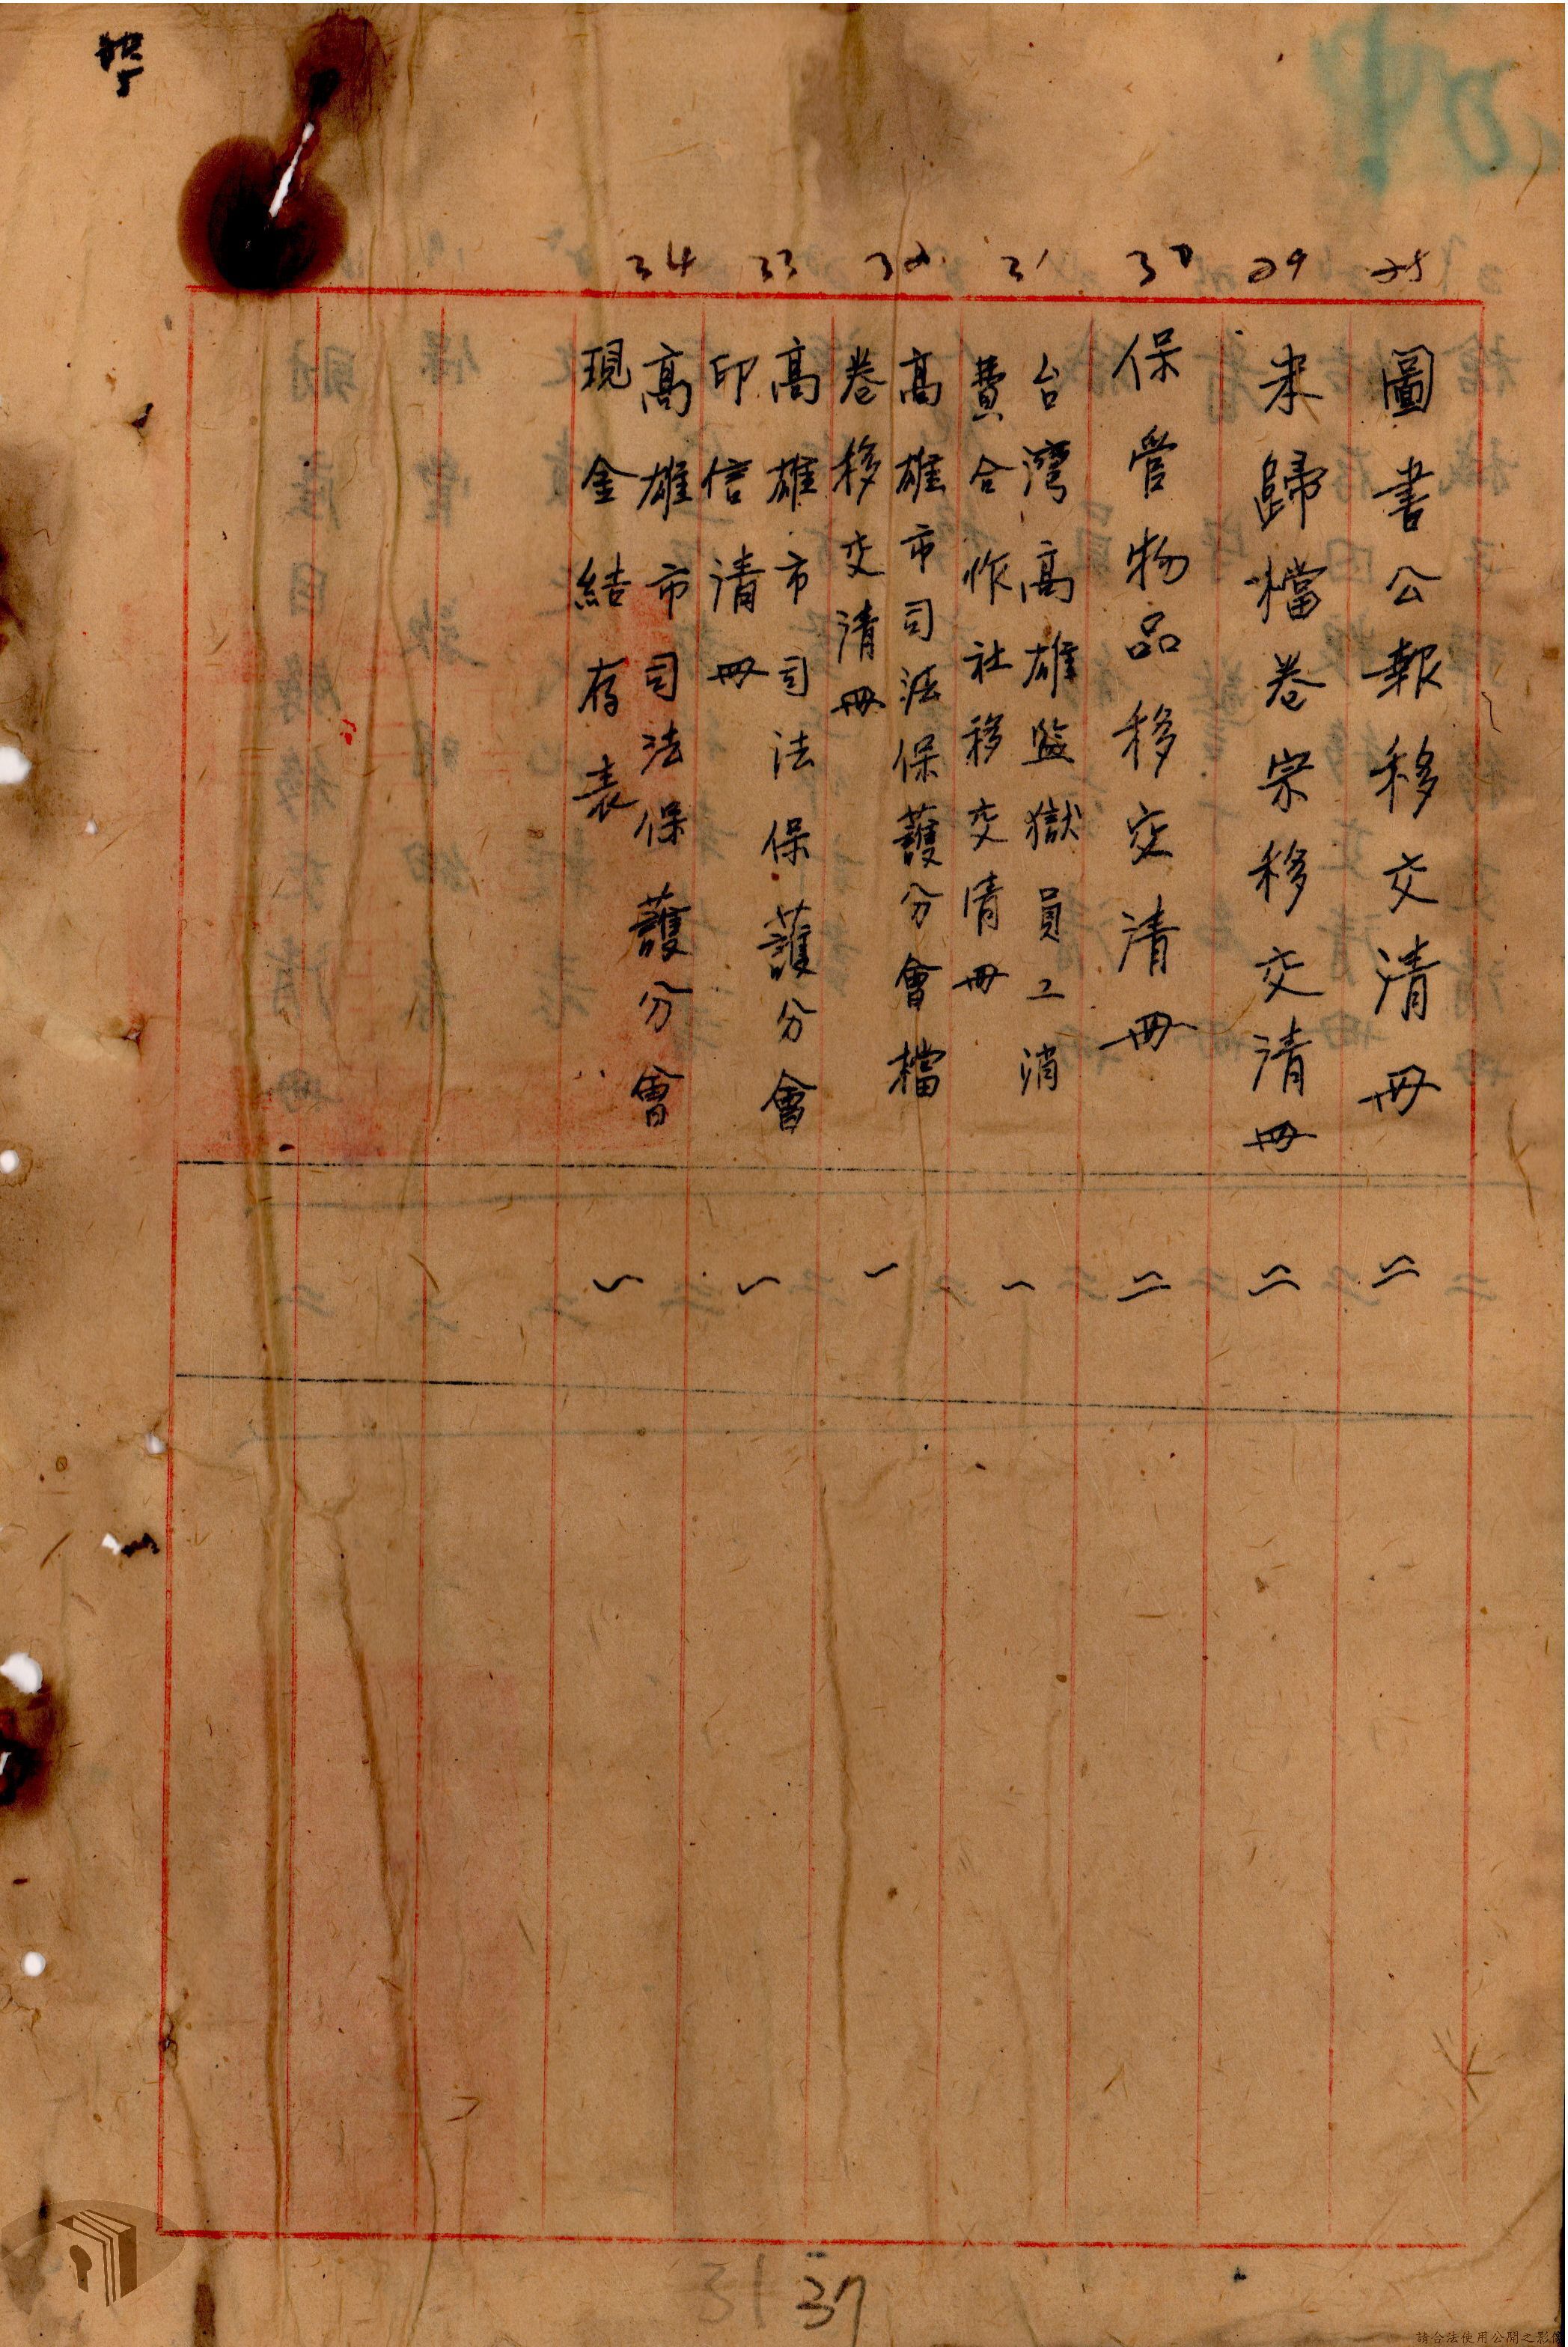 28
圖書公報移交清冊
二
29
未歸檔卷宗移交清冊
二
30
保管物品移交清冊
二
31
台灣高雄監獄員工消
費合作社移交清冊
一
32
高雄市司法保護分會檔
卷移交清冊
一
33
高雄市司法保護分會
印信清冊
一
34
高雄市司法保護分會
現金結存表
一
31
37
請合法使用公開之影像